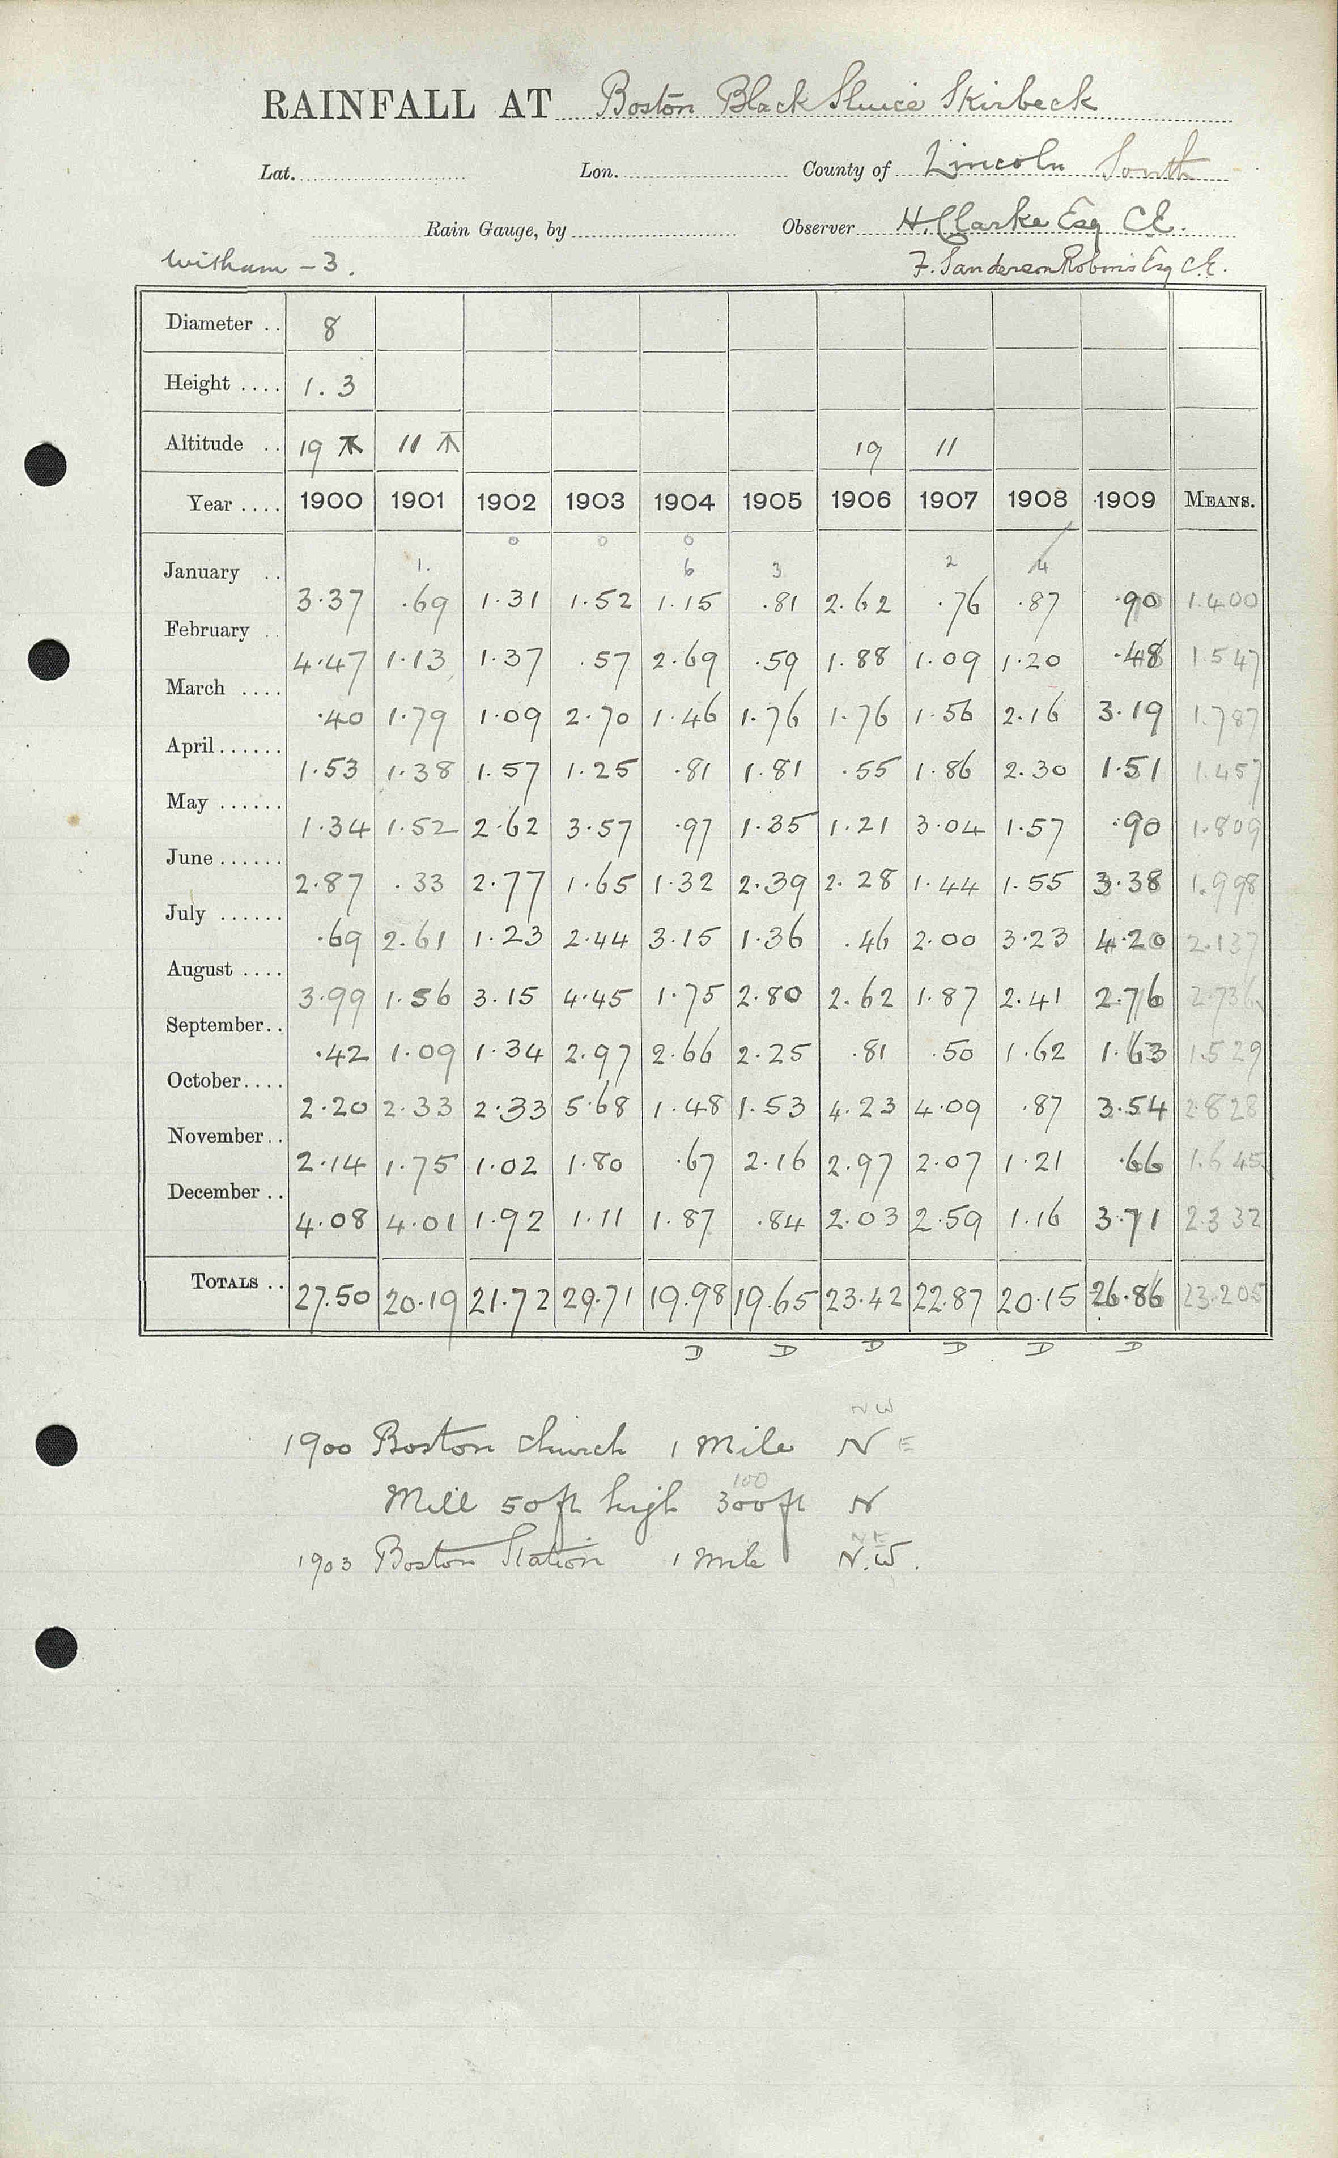 RAINFALL AT Boston Black Sluice Skirbeck
Lat. Lon. County of Lincoln South
Rain Gauge, by Observer H. Clarke Esq C.E.
Witham - 3. F. Sanderson Robins Esq C.E.
Diameter .. 8
Height .... 1.3
Altitude .. 19 11 19 11
Year .... 1900 1901 1902 1903 1904 1905 1906 1907 1908 1909 MEANS.
0 0 0
1. 6 3 2 4
January .. 3.37 .69 1.31 1.52 1.15 .81 2.62 .76 .87 .90 1.400
February .. 4.47 1.13 1.37 .57 2.69 .59 1.88 1.09 1.20 .48 1.547
March .... .40 1.79 1.09 2.70 1.46 1.76 1.76 1.56 2.16 3.19 1.787
April...... 1.53 1.38 1.57 1.25 .81 1.81 .55 1.86 2.30 1.51 1.457
May ...... 1.34 1.52 2.62 3.57 .97 1.35 1.21 3.04 1.57 .90 1.809
June ...... 2.87 .33 2.77 1.65 1.32 2.39 2.28 1.44 1.55 3.38 1.998
July ...... .69 2.61 1.23 2.44 3.15 1.36 .46 2.00 3.23 4.20 2.137
August .... 3.99 1.56 3.15 4.45 1.75 2.80 2.62 1.87 2.41 2.76 2.736
September.. .42 1.09 1.34 2.97 2.66 2.25 .81 .50 1.62 1.63 1.529
October.... 2.20 2.33 2.33 5.68 1.48 1.53 4.23 4.09 .87 3.54 2.828
November.. 2.14 1.75 1.02 1.80 .67 2.16 2.97 2.07 1.21 .66 1.645
December .. 4.08 4.01 1.92 1.11 1.87 .84 2.03 2.59 1.16 3.71 2.332
TOTALS .. 27.50 20.19 21.72 29.71 19.98 19.65 23.42 22.87 20.15 26.86 23.205
D D D D D D
NW
1900 Boston church 1 Mile N E
100
Mill 50ft high 300ft N
NE
1903 Boston Station 1 Mile N.W.